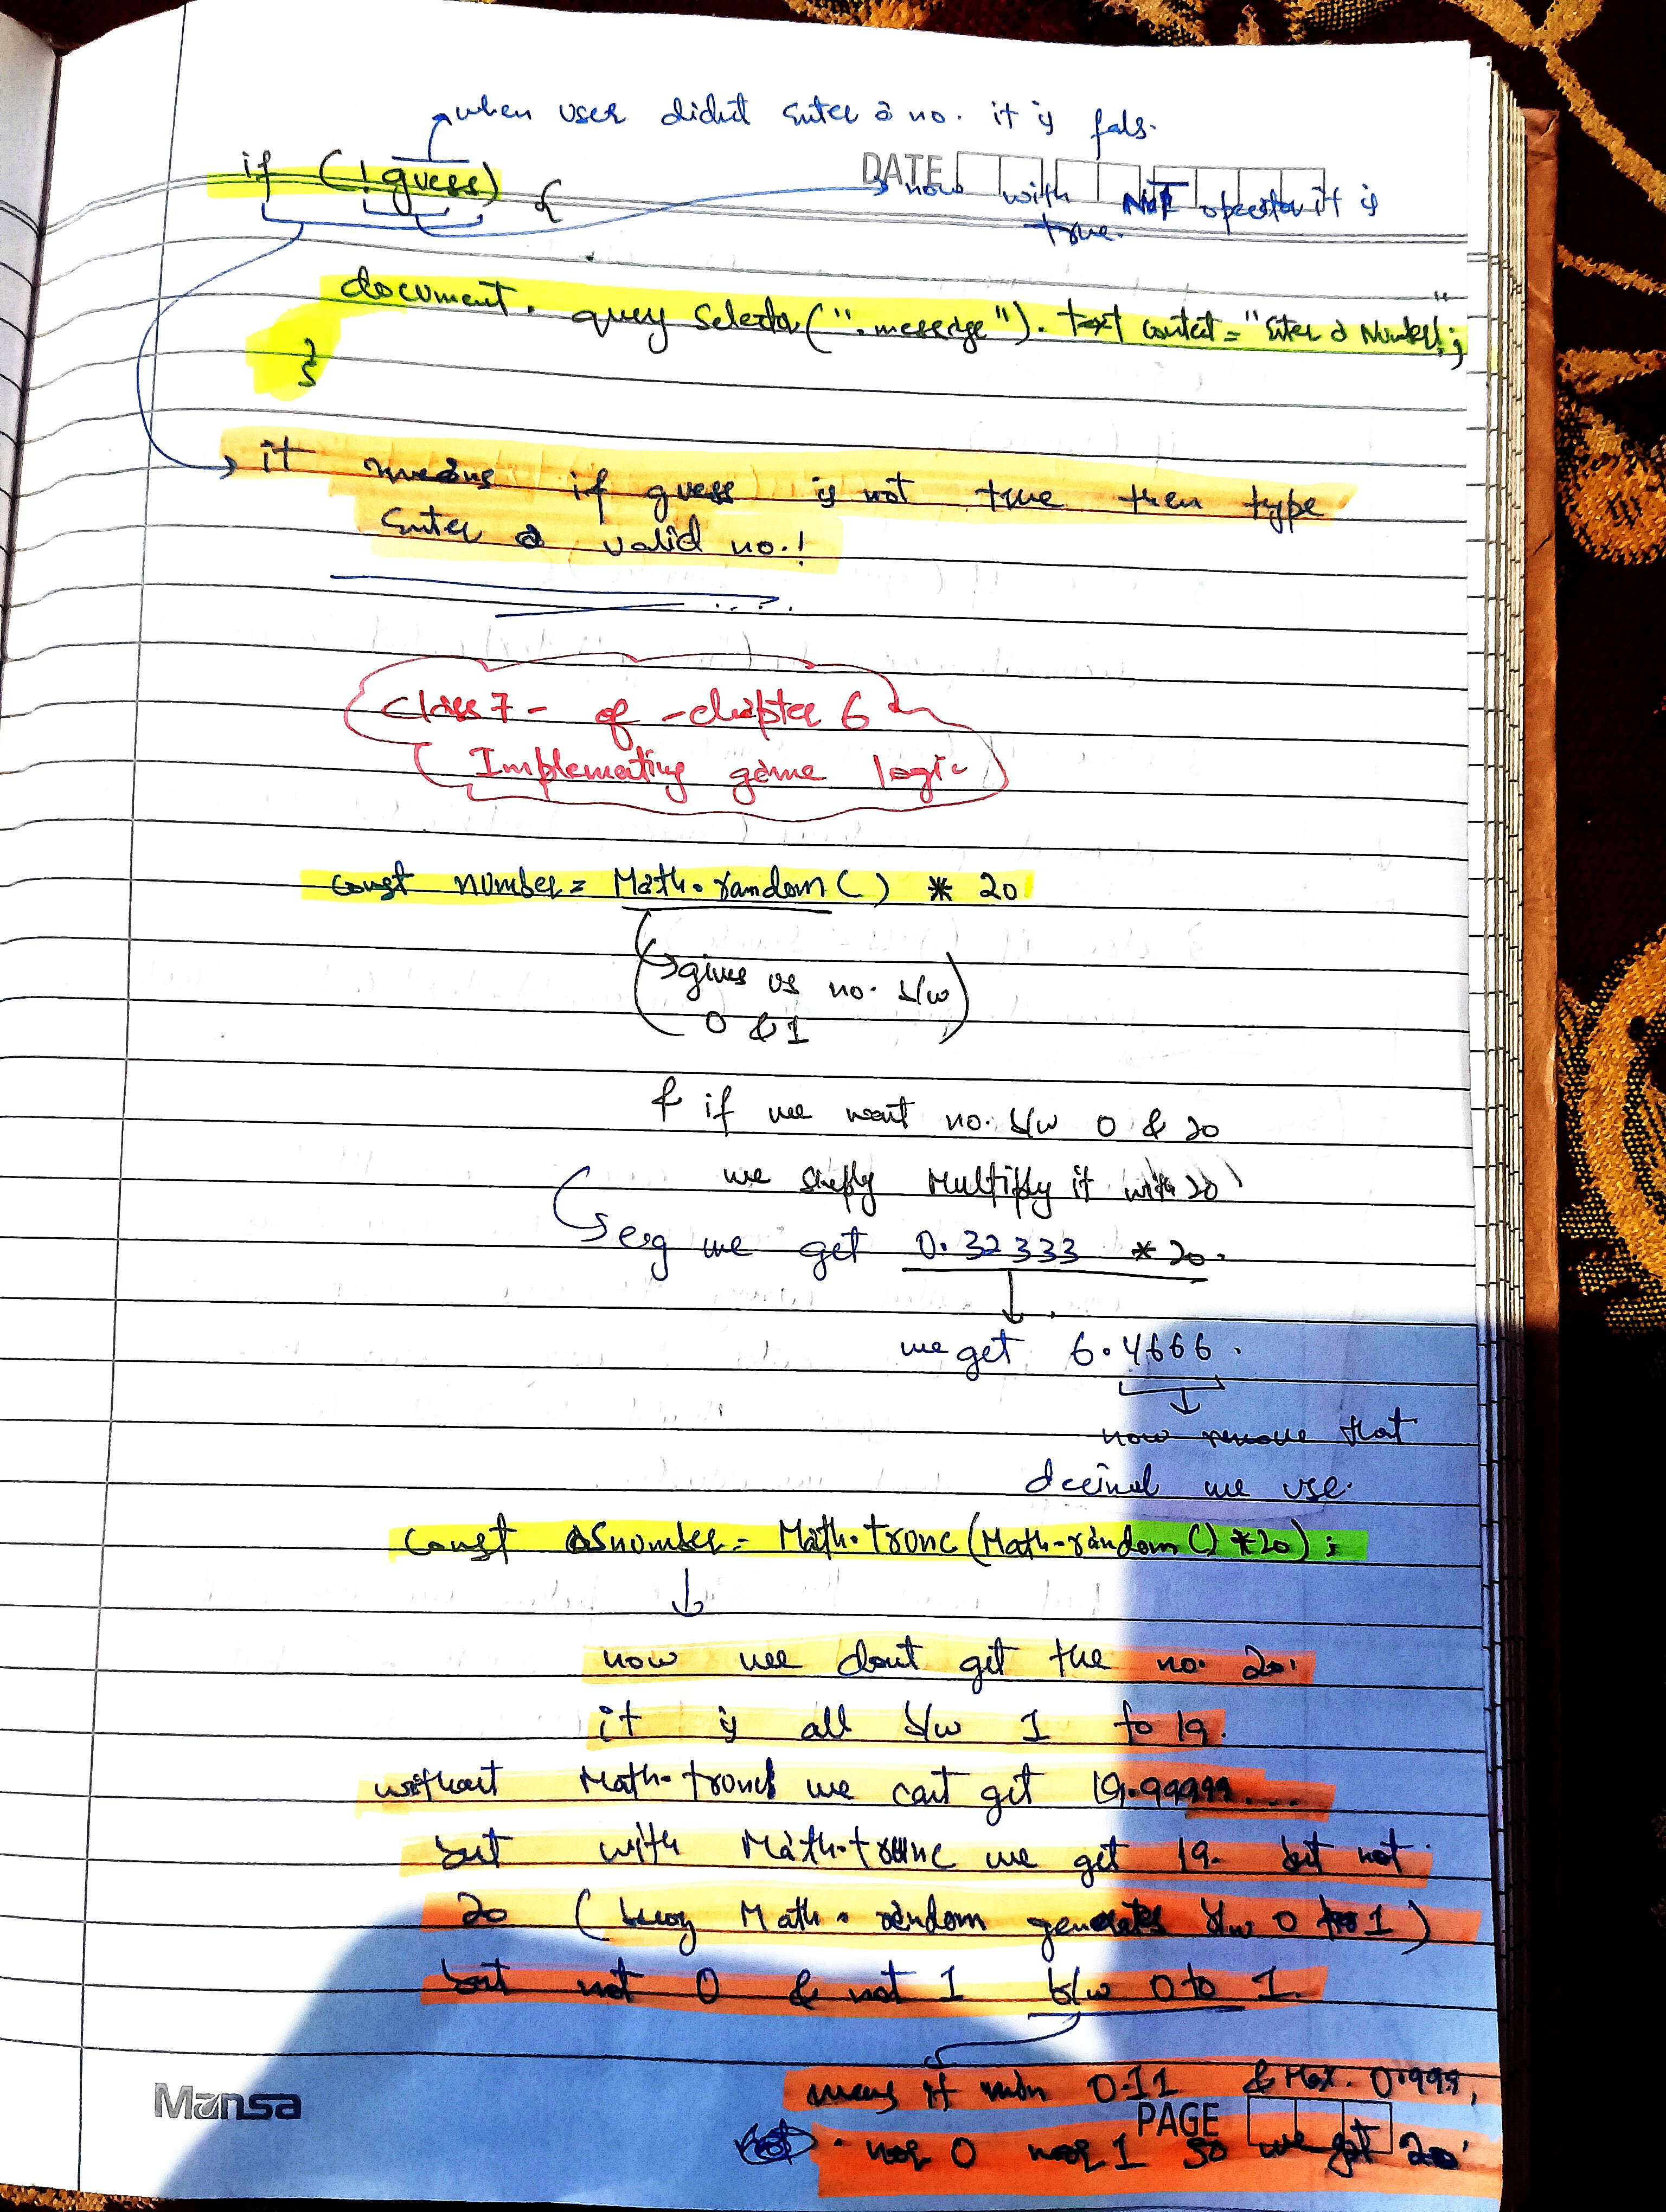 when user didn't enter a no. it is fals.
if (!guess) {
DATE
now with NOT operator it is
true.
document. query Selector(".message"). text content = "Enter a Number!";
}
it means if guess is not true then type
Enter a valid no.!
Class 7 - of - chapter 6
Implementing game logic
const number = Math.random() * 20
gives us no. b/w
0 & 1
& if we want no. b/w 0 & 20
we simply Multiply it with 20
eg we get 0.32333 * 20.
we get 6.4666.
now remove that
decimal we use.
const Snumber = Math.trunc(Math.random() * 20);
now we dont get the no. 20.
it is all b/w 1 to 19.
without Math.trunc we cant get 19.99999...
but with Math.trunc we get 19. but not
20 ( Math.random generates b/w 0 to 1)
but not 0 & not 1 b/w 0 to 1.
means it min 0.11 & Max. 0.999,
Mansa
PAGE
0 1 so we get 20